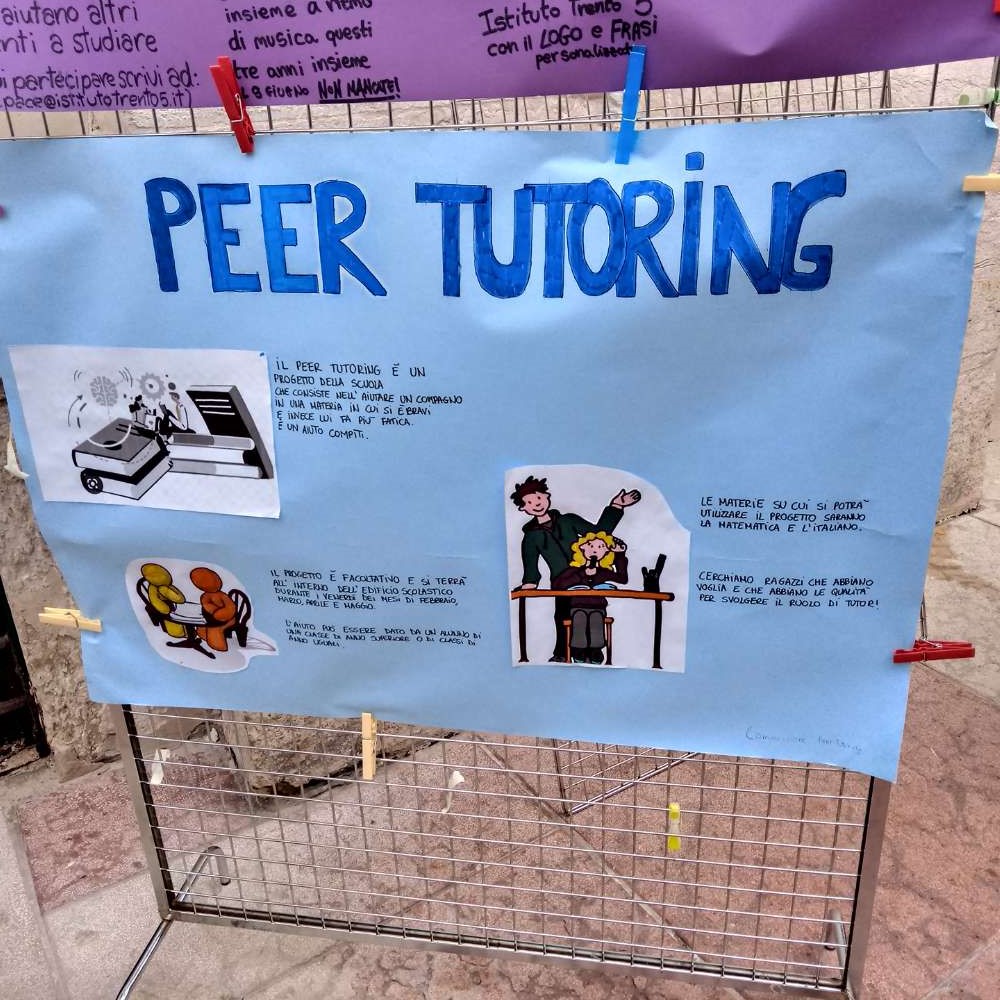 aiutano altri
nti a studiare
i partecipare scrivi ad:
pace@istitutotrento5.it)
insieme a ritmo
di musica. questi
tre anni insieme
NON MANCATE!
Istituto Trento 5
con il LOGO e FRASI
personalizzate
PEER TUTORING
IL PEER TUTORING È UN
PROGETTO DELLA SCUOLA
CHE CONSISTE NELL' AIUTARE UN COMPAGNO
IN UNA MATERIA IN CUI SI È BRAVI
E INVECE LUI FA PIU' FATICA.
È UN AIUTO COMPITI.
IL PROGETTO È FACOLTATIVO E SI TERRA'
ALL' INTERNO DELL' EDIFICIO SCOLASTICO
DURANTE I VENERDÌ DEI MESI DI FEBBRAIO,
MARZO, APRILE E MAGGIO.
L'AIUTO PUÒ ESSERE DATO DA UN ALUNNO DI
UNA CLASSE DI ANNO SUPERIORE O DI CLASSI DI
ANNO UGUALI.
LE MATERIE SU CUI SI POTRA'
UTILIZZARE IL PROGETTO SARANNO
LA MATEMATICA E L'ITALIANO.
CERCHIAMO RAGAZZI CHE ABBIANO
VOGLIA E CHE ABBIANO LE QUALITA'
PER SVOLGERE IL RUOLO DI TUTOR!